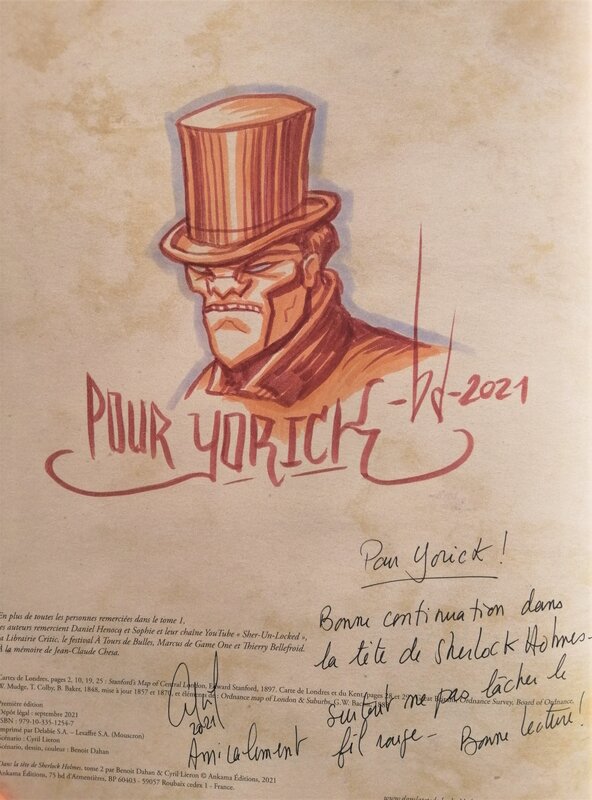 POUR YORICK -bd-2021
Pour Yorick !
Bonne continuation dans
la tête de Sherlock Holmes-
Surtout ne pas lâcher le
fil rouge- Bonne lecture!
2021
Amicalement
En plus de toutes les personnes remerciées dans le tome 1.
es auteurs remercient Daniel Henocq et Sophie et leur chaîne YouTube « Sher-Un-Locked »,
a Librairie Critic, le festival À Tours de Bulles, Marcus de Game One et Thierry Bellefroid.
À la mémoire de Jean-Claude Chesa.
Cartes de Londres, pages 2, 10, 19, 25 : Stanford's Map of Central London, Edward Stanford, 1897. Carte de Londres et du Kent, pages 28 et
W. Mudge, T. Colby, B. Baker, 1848, mise à jour 1857 et 1870, et : Ordnance map of London & Suburbs, G.W. Survey, Board of Ordnance,
Première édition
Dépôt légal : septembre 2021
ISBN : 979-10-335-1254-7
Imprimé par Delabie S.A. – Lesaffre S.A. (Mouscron)
Scénario : Cyril Lieron
Scénario, dessin, couleur : Benoit Dahan
Dans la tête de Sherlock Holmes, tome 2 par Benoit Dahan & Cyril Lieron © Ankama Éditions, 2021
Ankama Éditions, 75 bd d'Armentières, BP 60403 - 59057 Roubaix cedex 1 - France.